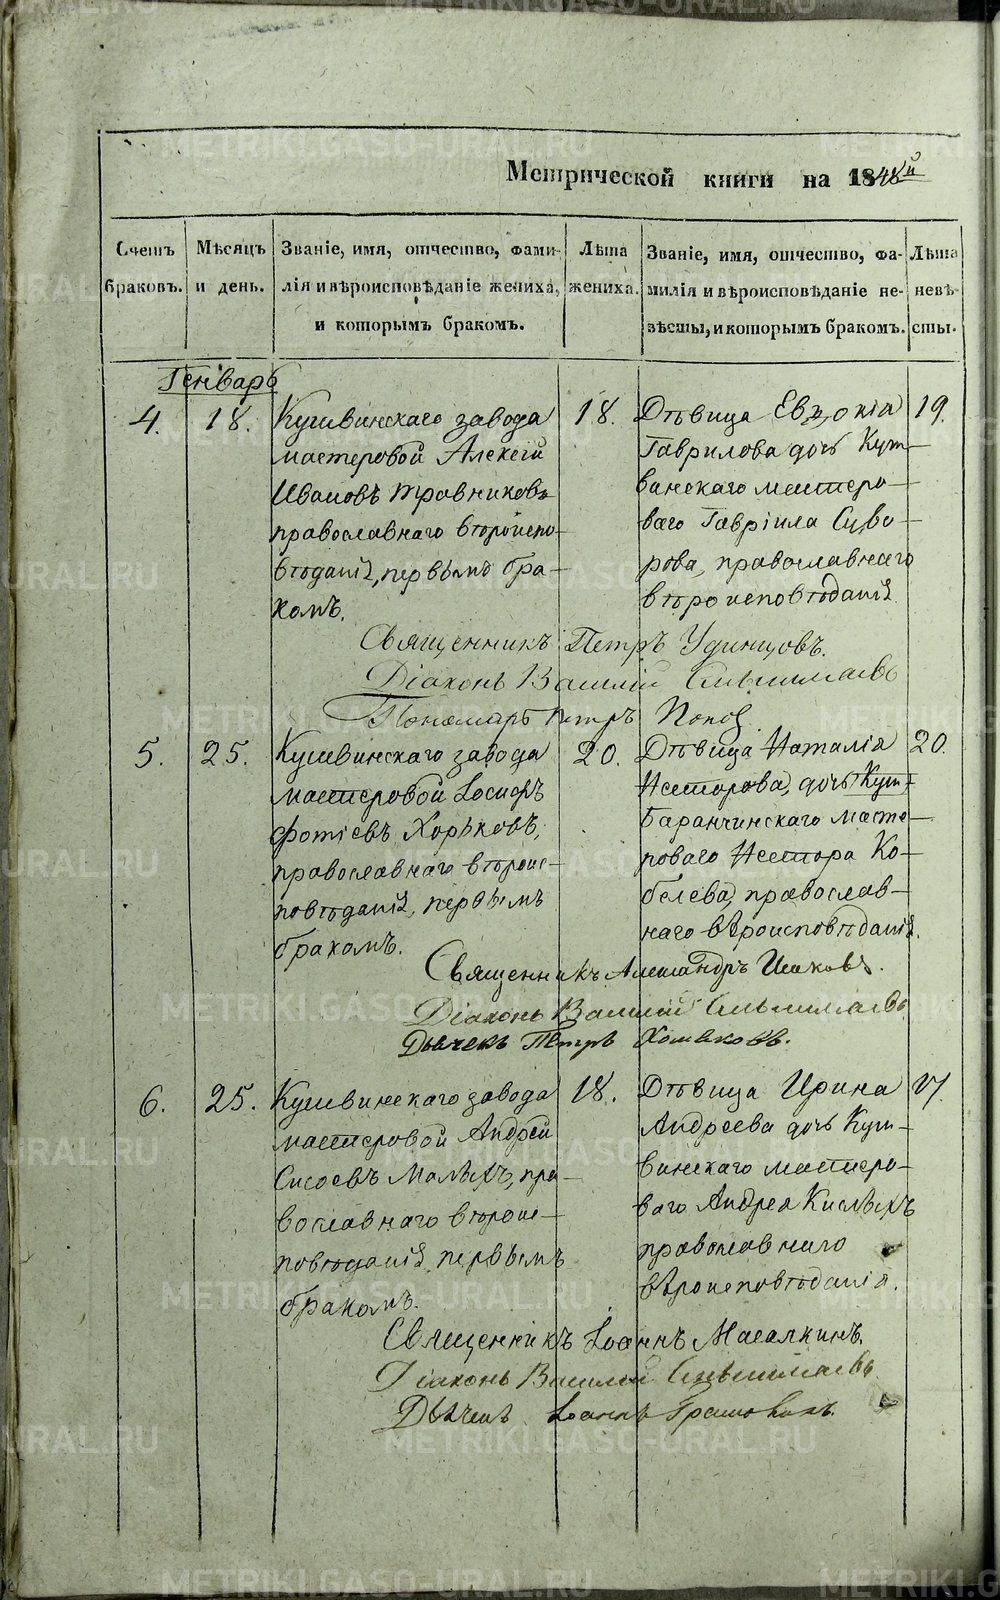 Метрической книги на 1848й
Счетъ браковъ.
Мѣсяцъ и день.
Званіе, имя, отчество, фами-
лія и вѣроисповѣданіе жениха,
и которымъ бракомъ.
Лѣта жениха.
Званіе, имя, отчество, фа-
милія и вѣроисповѣданіе не-
вѣсты, и которымъ бракомъ.
Лѣта невѣ-
сты.
Генварь
4.
18.
Кушвинскаго завода
мастеровой Алексѣй
Ивановъ Травниковъ
православнаго вѣроиспо-
вѣданія, первымъ бра-
комъ.
18.
Дѣвица Евдокія
Гаврилова дочь Куш-
винскаго мастеро-
ваго Гавріила Суво-
рова, православнаго
вѣроисповѣданія
19.
Священникъ Петръ Удинцовъ.
Діаконъ Василій
Пономарь Петръ Попов
5.
25.
Кушвинскаго завода
мастеровой Іосифъ
Фотіевъ Хорьковъ,
православнаго вѣроис-
повѣданія, первымъ
бракомъ.
20.
Дѣвица Наталія
Несторова, дочь Куш-
Баранчинскаго масте-
роваго Нестора Ко-
белева, православ-
наго вѣроисповѣданія.
20.
Священникъ Александръ
Діаконъ Василій
Дьячекъ Петръ Хомяковъ.
6.
25.
Кушвинскаго завода
мастеровой Андрей
Сисоевъ Малыхъ, пра-
вославнаго вѣроис-
повѣданія первымъ
бракомъ.
18.
Дѣвица Ирина
Андреева дочь Куш-
винскаго мастеро-
ваго Андрея Кислыхъ
православнаго
вѣроисповѣданія.
Священникъ Іоаннъ Масалкинъ.
Діаконъ Василій
Дьячекъ Іоаннъ
METRIKI.GASO-URAL.RU